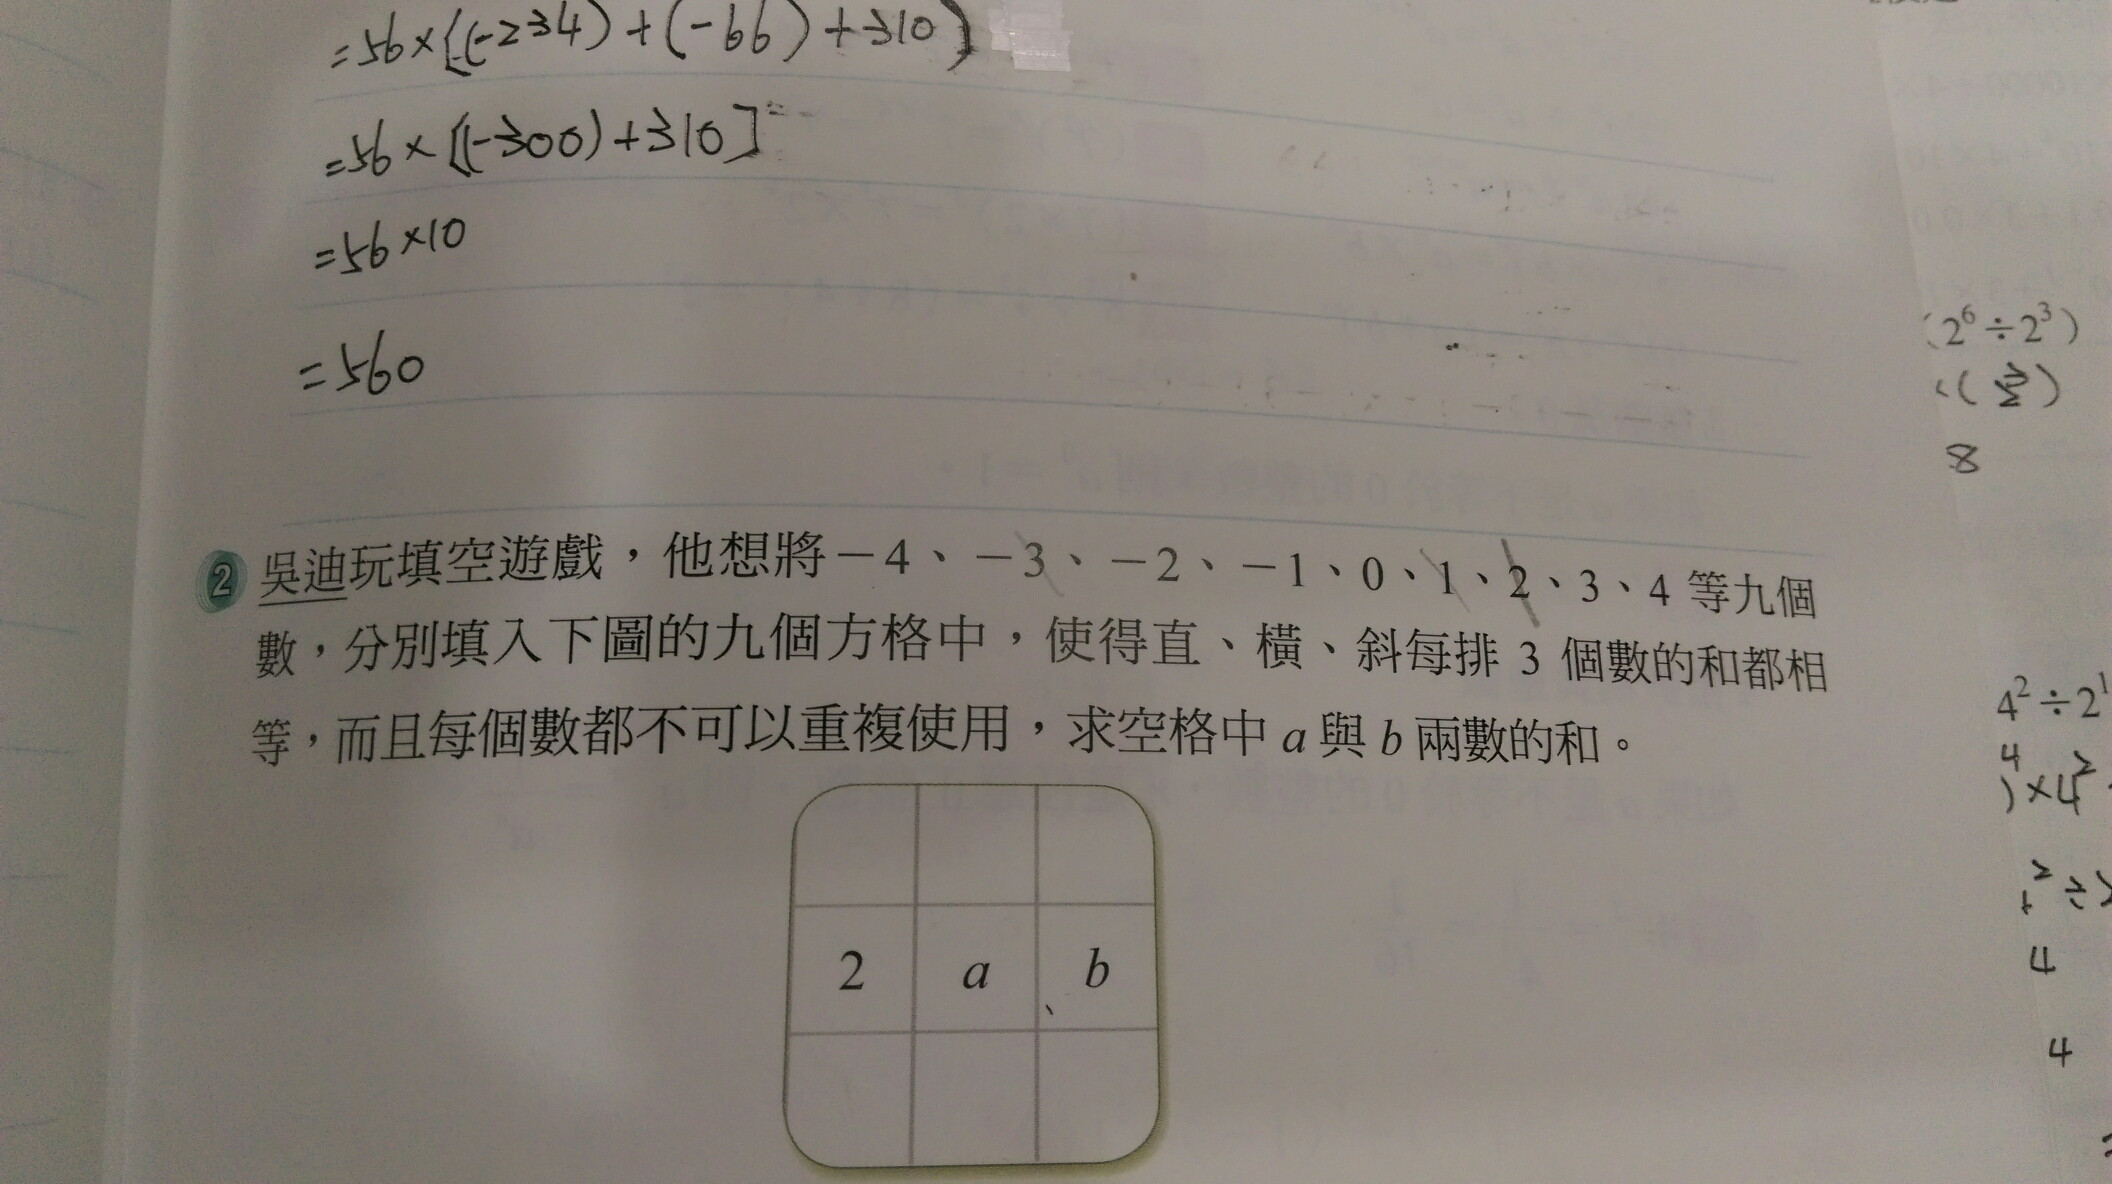 =56×[(-234)+(-66)+310]
=56×[(-300)+310]
=56×10
=560
(2⁶÷2³)
8
2 吳迪玩填空遊戲，他想將－4、－3、－2、－1、0、1、2、3、4 等九個
數，分別填入下圖的九個方格中，使得直、橫、斜每排 3 個數的和都相
等，而且每個數都不可以重複使用，求空格中 a 與 b 兩數的和。
4²÷2¹
4
)×4²
2 a b
4
4